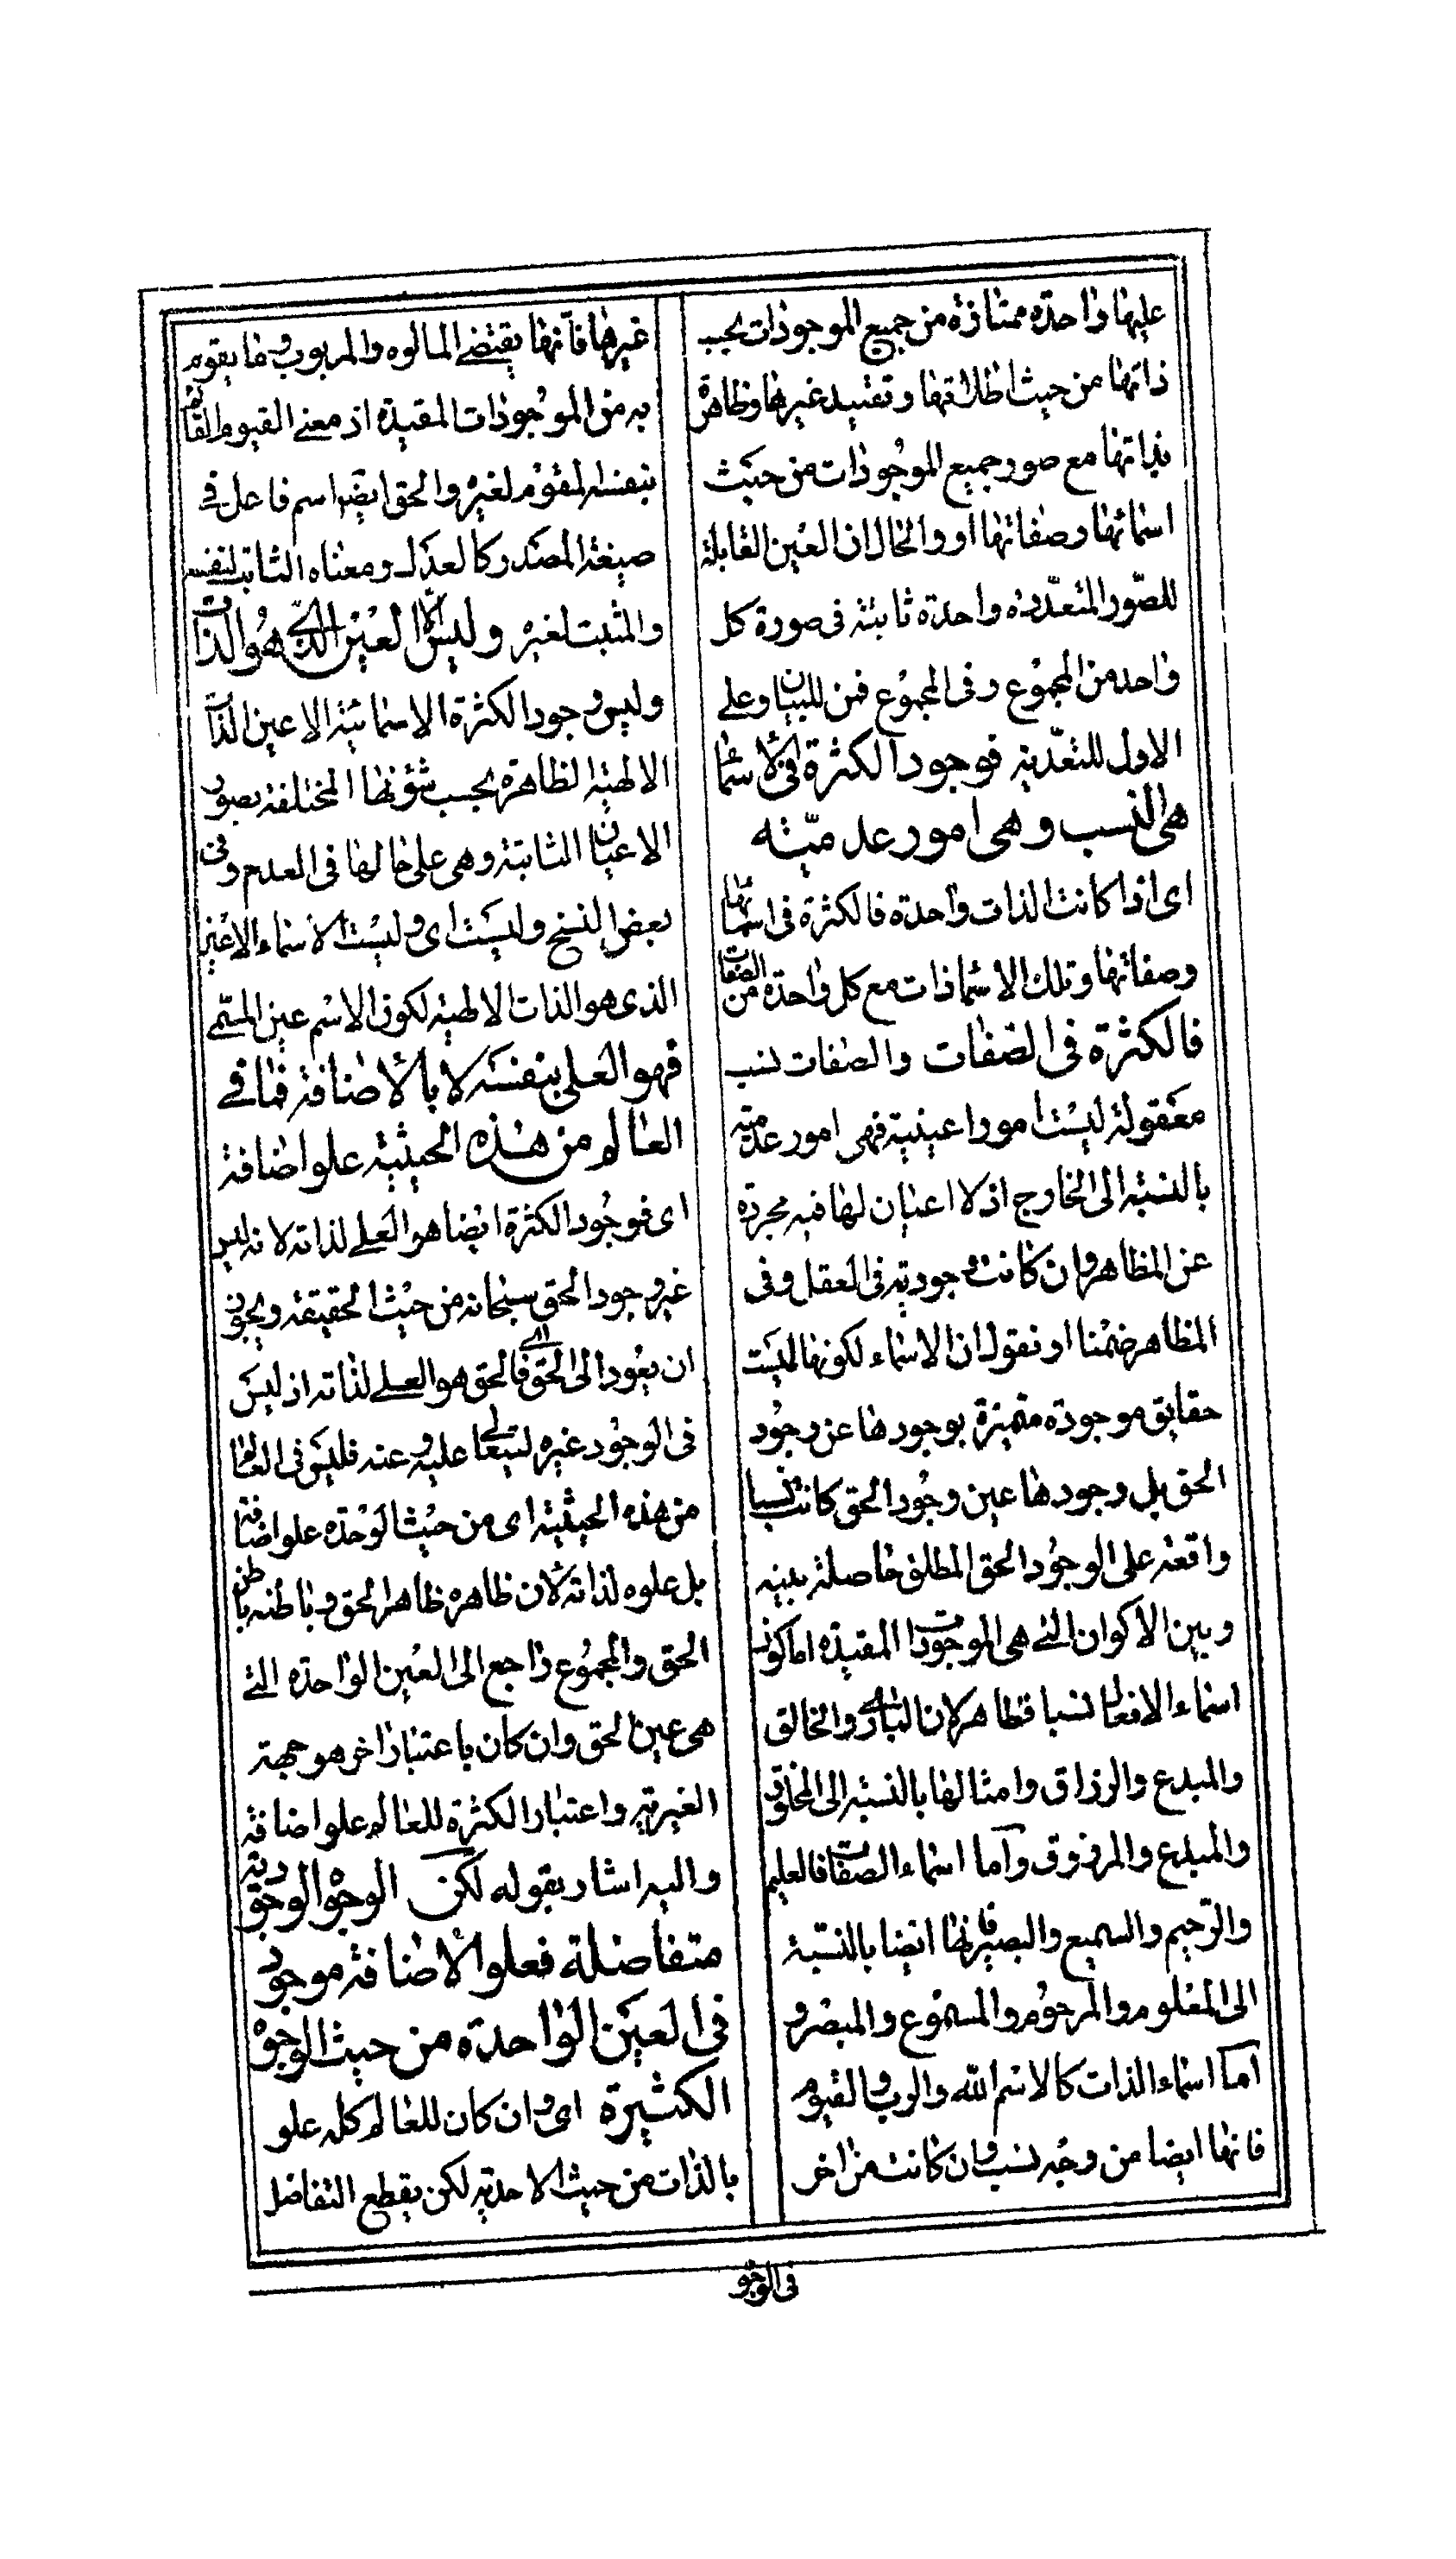 عليها واحدة ممتازة من جميع الموجودات بحسب
ذاتها من حيث اطلاقها وتقييد غيرها وظاهرة
بذاتها مع صور جميع الموجودات من حيث
اسمائها وصفاتها او والحال ان العين القابلة
للصور المتعددة واحدة ثابتة فى صورة كل
واحد من المجموع وفى المجموع فمن للبيان وعلى
الاول للتعدية فوجود الكثرة فى الاسماء
هى النسب وهى امور عدمية
اى اذا كانت الذات واحدة فالكثرة فى اسمائها
وصفاتها وتلك الاسماء ذات مع كل واحدة من الصفات
فالكثرة فى الصفات والصفات نسب
معقولة ليست امورا عينية فهى امور عدمية
بالنسبة الى الخارج اذ لا اعيان لها فيه مجردة
عن المظاهر وان كانت وجودية فى العقل وفى
المظاهر ضمنا او نقول ان الاسماء لكونها ليست
حقايق موجودة متميزة بوجودها عن وجود
الحق بل وجودها عين وجود الحق كانت نسبا
واقعة على الوجود الحق المطلق حاصلة بينه
وبين الاكوان التى هى الموجودات المقيدة اما كون
اسماء الافعال نسبا فظاهر لان البارى والخالق
والمبدع والرزاق وامثالها بالنسبة الى المخلوق
والمبدع والمرزوق وآما اسماء الصفات فالعليم
والرّحيم والسميع والبصير فانها ايضا بالنسبة
الى المعلوم والمرحوم والمسموع والمبصر و
اما اسماء الذات كالاسم الله والرب والقيوم
فانها ايضا من وجه نسب وان كانت من اخر
غيرها فانها يقتضى المالوه والمربوب وما يقوم
به من الموجودات المقيدة اذ معنى القيوم القائم
بنفسه المقوم لغيره والحق ايضا اسم فاعل فى
صيغة المصدر كالعدل ومعناه الثابت لنفسه
والمثبت لغيره وليس الا العين الذى هو الذات
وليس وجود الكثرة الاسمائية الا عين الذات
الالهية الظاهرة بحسب شؤنها المختلفة بصور
الاعيان الثابتة وهى على حالها فى العدم وفى
بعض النسخ وليست اى وليست الاسماء الا عين
الذى هو الذات الالهية لكون الاسم عين المسمى
فهو العلى بنفسه لا بالاضافة فما فى
العالم من هذه الحيثية علو اضافة
اى فوجود الكثرة ايضا هو العلى لذاته لانه ليس
غير وجود الحق سبحانه من حيث الحقيقة ويجوز
ان يعود الى الحق اى فالحق هو العلى لذاته اذ ليس
فى الوجود غيره ليتعالى عليه وعنه فليس فى العالم
من هذه الحيثية اى من حيث الوحدة علو اضافة
بل علوه لذاته لان ظاهره ظاهر الحق وباطنه باطن
الحق والمجموع راجع الى العين الواحدة التى
هى عين الحق وان كان باعتبار اخر هو جهة
الغيرية واعتبار الكثرة للعالم علو اضافة
واليه اشار بقوله لكن الوجوه الوجودية
متفاضلة فعلو الاضافة موجود
فى العين الواحدة من حيث الوجوه
الكثيرة اى وان كان للعالم كله علو
بالذات من حيث الاحدية لكن يقطع التفاضل
فى الوجو